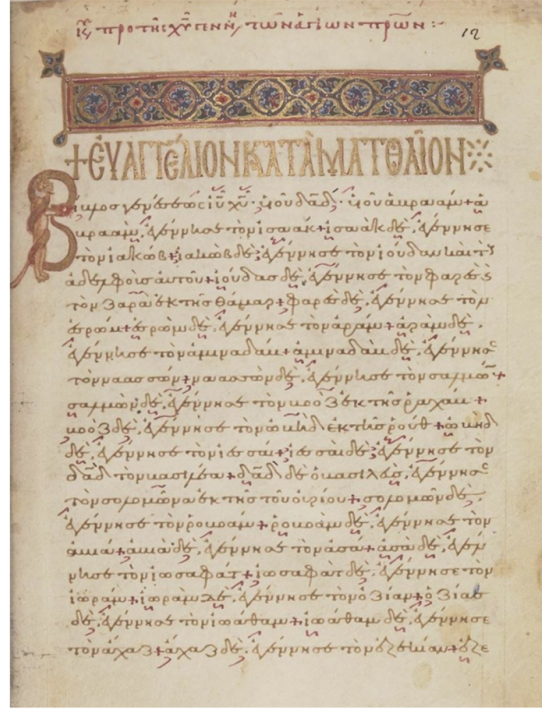 Κυ πρὸ τῆς χυ γεννή τῶν ἁγίων πρων :· 12
+ ΕΥΑΓΓΕΛΙΟΝ ΚΑΤΑ ΜΑΤΘΑΙΟΝ
Βίβλος γενέσεως ιυ χυ · υἱοῦ δαδ · υἱοῦ ἀβραάμ + ἀ
βραὰμ, ἐγέννησε τὸν ἰσαάκ + ἰσαὰκ δὲ, ἐγέννησε
τὸν ἰακώβ + ἰακὼβ δὲ, ἐγέννησε τὸν ἰούδαν καὶ τοὺς
ἀδελφοὺς αὐτοῦ + ἰούδας δὲ, ἐγέννησε τὸν φαρὲς
τὸν ζαρὰ ἐκ τῆς θάμαρ + φαρὲς δὲ, ἐγέννησε τὸν
ἐσρώμ + ἐσρὼμ δὲ, ἐγέννησε τὸν ἀράμ + ἀρὰμ δὲ,
ἐγέννησε τὸν ἀμιναδάμ + ἀμιναδὰμ δὲ, ἐγέννησε
τὸν ναασσών + ναασσὼν δὲ, ἐγέννησε τὸν σαλμών +
σαλμὼν δὲ, ἐγέννησε τὸν βοὸζ ἐκ τῆς ῥαχάβ +
βοὸζ δὲ, ἐγέννησε τὸν ὠβὴδ ἐκ τῆς ῥούθ + ὠβὴδ
δὲ, ἐγέννησε τὸν ἰεσσαί + ἰεσσαὶ δὲ, ἐγέννησε τὸν
δαδ τὸν βασιλέα + δαδ δὲ ὁ βασιλεὺς, ἐγέννησε
τὸν σολομῶνα ἐκ τῆς τοῦ οὐρίου + σολομὼν δὲ,
ἐγέννησε τὸν ῥοβοάμ + ῥοβοὰμ δὲ, ἐγέννησε τὸν
ἀβιά + ἀβιὰ δὲ, ἐγέννησε τὸν ἀσά + ἀσὰ δὲ, ἐγέν
νησε τὸν ἰωσαφάτ + ἰωσαφὰτ δὲ, ἐγέννησε τὸν
ἰωράμ + ἰωρὰμ δὲ, ἐγέννησε τὸν ὀζίαν + ὀζίας
δὲ, ἐγέννησε τὸν ἰωάθαμ + ἰωάθαμ δὲ, ἐγέννησε
τὸν ἄχαζ + ἄχαζ δὲ, ἐγέννησε τὸν ἐζεκίαν + ἐζε